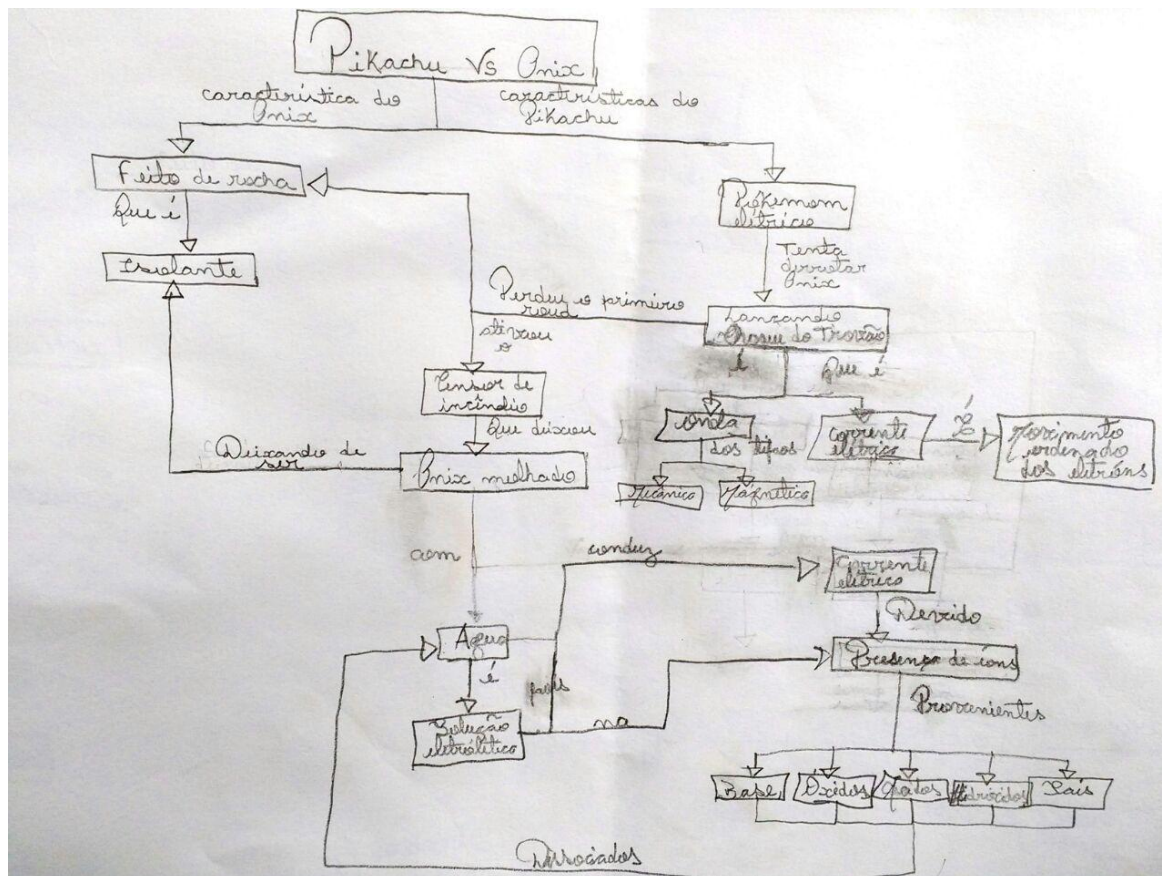 Pikachu Vs Onix
característica do
Onix
características do
Pikachu
Feito de rocha
Que é
Isolante
Pokemom
elétrico
Tenta
derrotar
Onix
Lanzando
Choque do Trovão
Perdeu o primeiro
round
ativou
o
Sensor de
incêndio
Que deixou
Onix molhado
Deixando de
ser
é
Que é
onda
dos tipos
Mecânica
Magnética
Corrente
elétrica
É
Movimento
ordenado
dos elétrons
com
conduz
Corrente
elétrica
Devido
Presença de íons
Água
é
pois
na
Solução
eletrolítica
Provenientes
Base
Óxidos
Ácidos
Hidróxidos
Sais
Dissociados